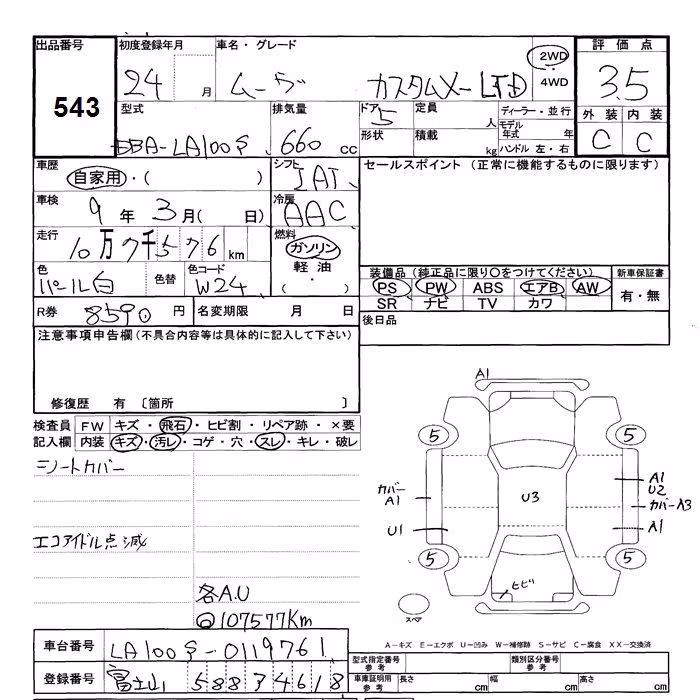 出品番号 初度登録年月 車名・グレード 評価点
543 24 月 ムーヴ カスタムX-LTD 2WD 4WD 3.5
型式 排気量 ドア 5 定員 人 ディーラー・並行 外装 内装
DBA-LA100S 660 cc 形状 積載 kg モデル年式 年 ハンドル 左・右 C C
車歴 自家用・( ) シフト IAT セールスポイント (正常に機能するものに限ります)
車検 9年 3月( 日) 冷房 AAC
走行 10万7千576 km 燃料 ガソリン・軽油・( )
色 パール白 色替 色コード W24 装備品(純正品に限り○をつけてください) 新車保証書
PS PW ABS エアB AW 有・無
SR ナビ TV カワ
R券 8590 円 名変期限 月 日 後日品
注意事項申告欄(不具合内容等は具体的に記入して下さい)
修復歴 有 〔箇所 〕
検査員 FW キズ・飛石・ヒビ割・リペア跡・×要
記入欄 内装 キズ・汚レ・コゲ・穴・スレ・キレ・破レ
シートカバー
エコアイドル点滅
各A.U
◎107577Km
A1
5 5
カバー A1 U3 A1 U2
カバーA3
U1 A1
5 5
ヒビ
スペア
A－キズ E－エクボ U－凹み W－補修跡 S－サビ C－腐食 XX－交換済
車台番号 LA100S-0119761 型式指定番号 参考 類別区分番号 参考
登録番号 富士山 588 3 4618 車庫証明用 参考 長さ cm 幅 cm 高さ cm